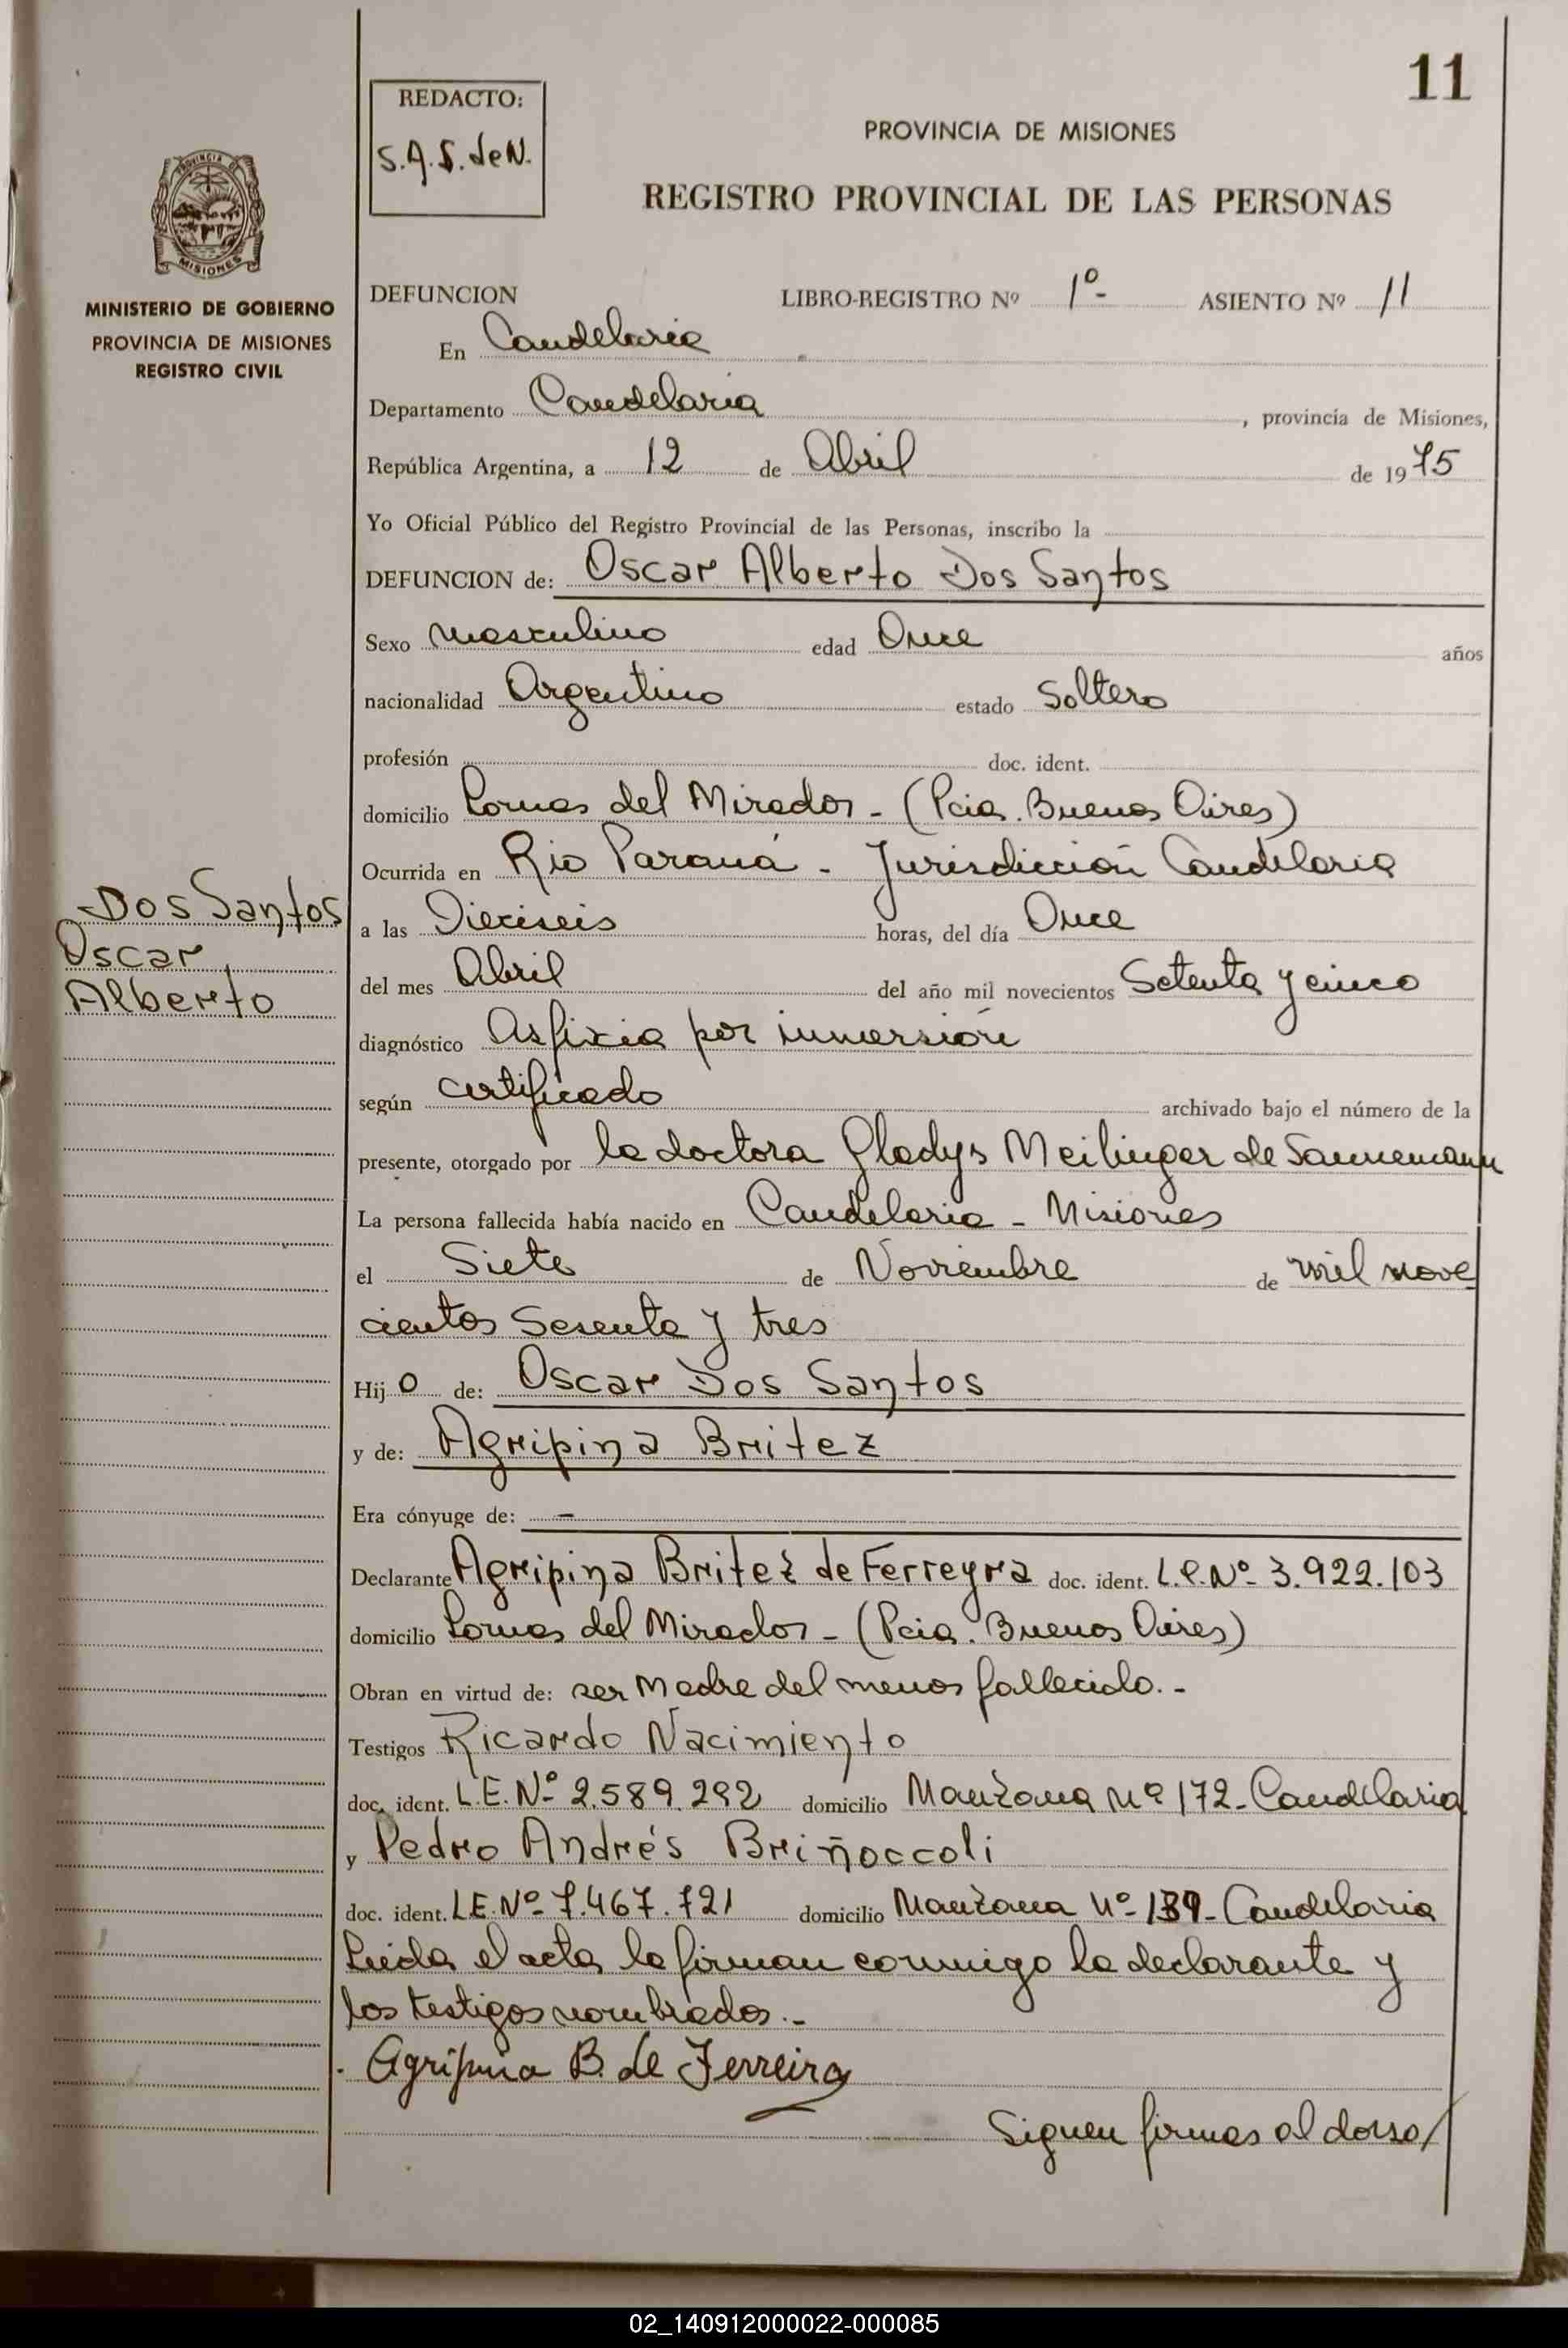 11
REDACTO:
S.A.S. de N.
PROVINCIA DE MISIONES
REGISTRO PROVINCIAL DE LAS PERSONAS
PROVINCIA DE
MISIONES
MINISTERIO DE GOBIERNO
PROVINCIA DE MISIONES
REGISTRO CIVIL
DEFUNCION LIBRO-REGISTRO Nº 1º- ASIENTO Nº 11
En Candelaria
Departamento Candelaria, provincia de Misiones,
República Argentina, a 12 de Abril de 1975
Yo Oficial Público del Registro Provincial de las Personas, inscribo la
DEFUNCION de: Oscar Alberto Dos Santos
Sexo masculino edad Once años
nacionalidad Argentino estado Soltero
profesión doc. ident.
domicilio Lomas del Mirador - (Pcia. Buenos Aires)
Ocurrida en Rio Paraná - Jurisdicción Candelaria
Dos Santos
Oscar
Alberto
a las Dieciseis horas, del día Once
del mes Abril del año mil novecientos Setenta y cinco
diagnóstico Asfixia por inmersión
según certificado archivado bajo el número de la
presente, otorgado por la doctora Gladys Meilinger de Sannemann
La persona fallecida había nacido en Candelaria - Misiones
el Siete de Noviembre de mil nove
cientos Sesenta y tres
Hijo de: Oscar Dos Santos
y de: Agripina Britez
Era cónyuge de: -
Declarante Agripina Britez de Ferreyra doc. ident. L.C. Nº- 3.922.103
domicilio Lomas del Mirador - (Pcia. Buenos Aires)
Obran en virtud de: ser Madre del menor fallecido.-
Testigos Ricardo Nacimiento
doc. ident. L.E. Nº- 2.589.292 domicilio Manzana nº 172- Candelaria
y Pedro Andrés Briñoccoli
doc. ident. L.E. Nº- 7.467.721 domicilio Manzana Nº- 139- Candelaria
Leida el acta la firman conmigo la declarante y
los testigos nombrados.-
Agripina B. de Ferreira
Siguen firmas al dorso/
02_140912000022-000085